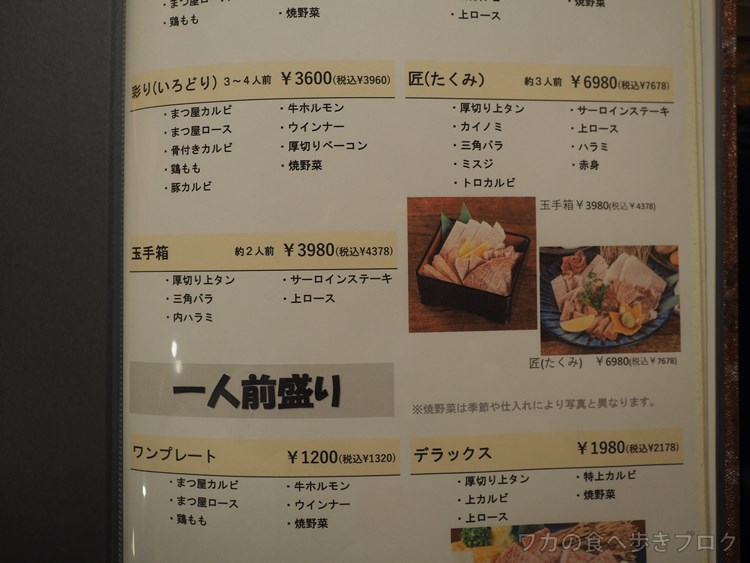 ・まつ屋ロース
・鶏もも
・焼野菜
・上ロース
・焼野菜
彩り(いろどり) 3～4人前 ￥3600(税込¥3960)
・まつ屋カルビ
・まつ屋ロース
・骨付きカルビ
・鶏もも
・豚カルビ
・牛ホルモン
・ウインナー
・厚切りベーコン
・焼野菜
匠(たくみ) 約3人前 ￥6980(税込¥7678)
・厚切り上タン
・カイノミ
・三角バラ
・ミスジ
・トロカルビ
・サーロインステーキ
・上ロース
・ハラミ
・赤身
玉手箱￥3980(税込￥4378)
匠(たくみ) ￥6980(税込￥7678)
※焼野菜は季節や仕入れにより写真と異なります。
玉手箱 約2人前 ￥3980(税込¥4378)
・厚切り上タン
・三角バラ
・内ハラミ
・サーロインステーキ
・上ロース
一人前盛り
ワンプレート ￥1200(税込¥1320)
・まつ屋カルビ
・まつ屋ロース
・鶏もも
・牛ホルモン
・ウインナー
・焼野菜
デラックス ￥1980(税込¥2178)
・厚切り上タン
・上カルビ
・上ロース
・特上カルビ
・焼野菜
ワカの食べ歩きブログ